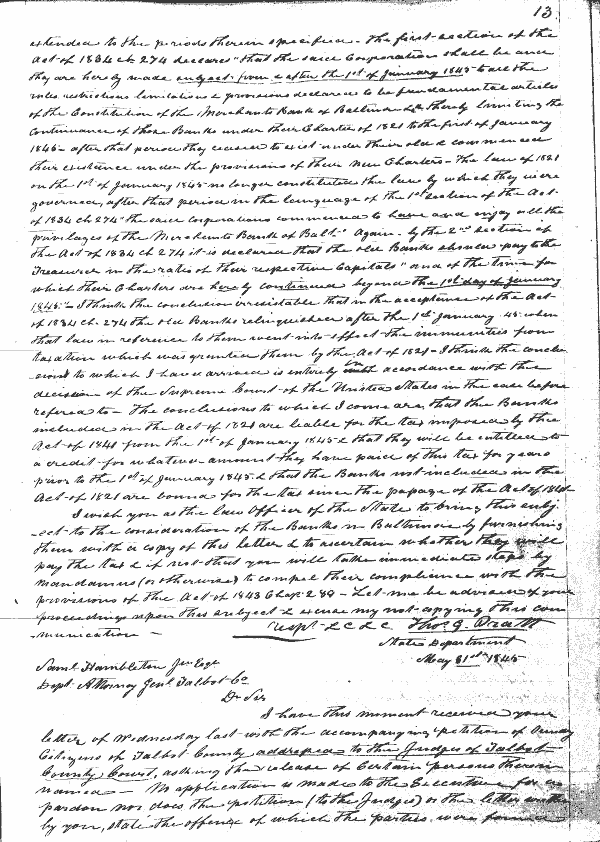 13
extended to the periods therein specified - The first section of the
Act of 1834 ch 274 declares "that the said Corporation shall be and
they are hereby made subject from & after the 1st of January 1845 to all the
rules restrictions limitations & provisions declared to be fundamental articles
of the Constitution of the Merchants Bank of Baltimore &c thereby limiting the
continuance of those Banks under their Charter of 1821 to the first of January
1845 - after that period they ceased to exist under their old & commenced
their existence under the provisions of their New Charters - The law of 1821
on the 1st of January 1845 no longer constituted the law by which they were
governed, after that period in the language of the 1st section of the Act
of 1834 ch 274 "the said Corporations commenced to have and enjoy all the
privileges of the Merchants Bank of Balt." Again - by the 2nd section of
the Act of 1834 ch 274 it is declared that the old Banks should pay to the
Treasurer in the ratio of their respective Capitals "and of the time for
which their Charters are hereby continued beyond the 1st day of January
1845" - I think the conclusion irresistable that in the acceptance of the Act
of 1834 ch. 274 the old Banks relinquished after the 1st January 45 when
that law in reference to them went into effect the immunities from
taxation which was granted them by the Act of 1821 - I think the conclu-
sions to which I have arrived is entirely in accordance with the
decision of the Supreme Court of the United States in the case before
refered to - The conclusions to which I come are, that the Banks
included in the Act of 1821 are liable for the tax imposed by the
Act of 1841 from the 1st of January 1845 & that they will be entitled to
a credit for whatever amount they have paid of this tax for years
prior to the 1st of January 1845 & that the Banks not included in the
Act of 1821 are bound for the tax since the passage of the Act of 1841
I wish you as the law Officer of the State to bring this subj-
ect to the consideration of the Banks in Baltimore by furnishing
them with a copy of this letter & to ascertain whether they will
pay the tax & if not that you will take immediate steps by
mandamus (or otherwise) to compel their compliance with the
provisions of the Act of 1843 Chap: 289 - Let me be advised of your
proceedings upon this subject & excuse my not copying this com
munication -
respt &c &c Thos. G. Pratt
State Department
May 31st 1845
Saml Hambleton Jnr Esqr
Dept Attorney Genl Talbot Co
Dr Sir
I have this moment received your
letter of Wednesday last with the accompanying petition of Sundry
Citizens of Talbot County addressed to the Judges of Talbot
County Court, asking the release of Certain persons therein
named - No application is made to the Executive for a
pardon nor does the petition (to the Judges) or the letter written
by you, state the offence of which the parties were found